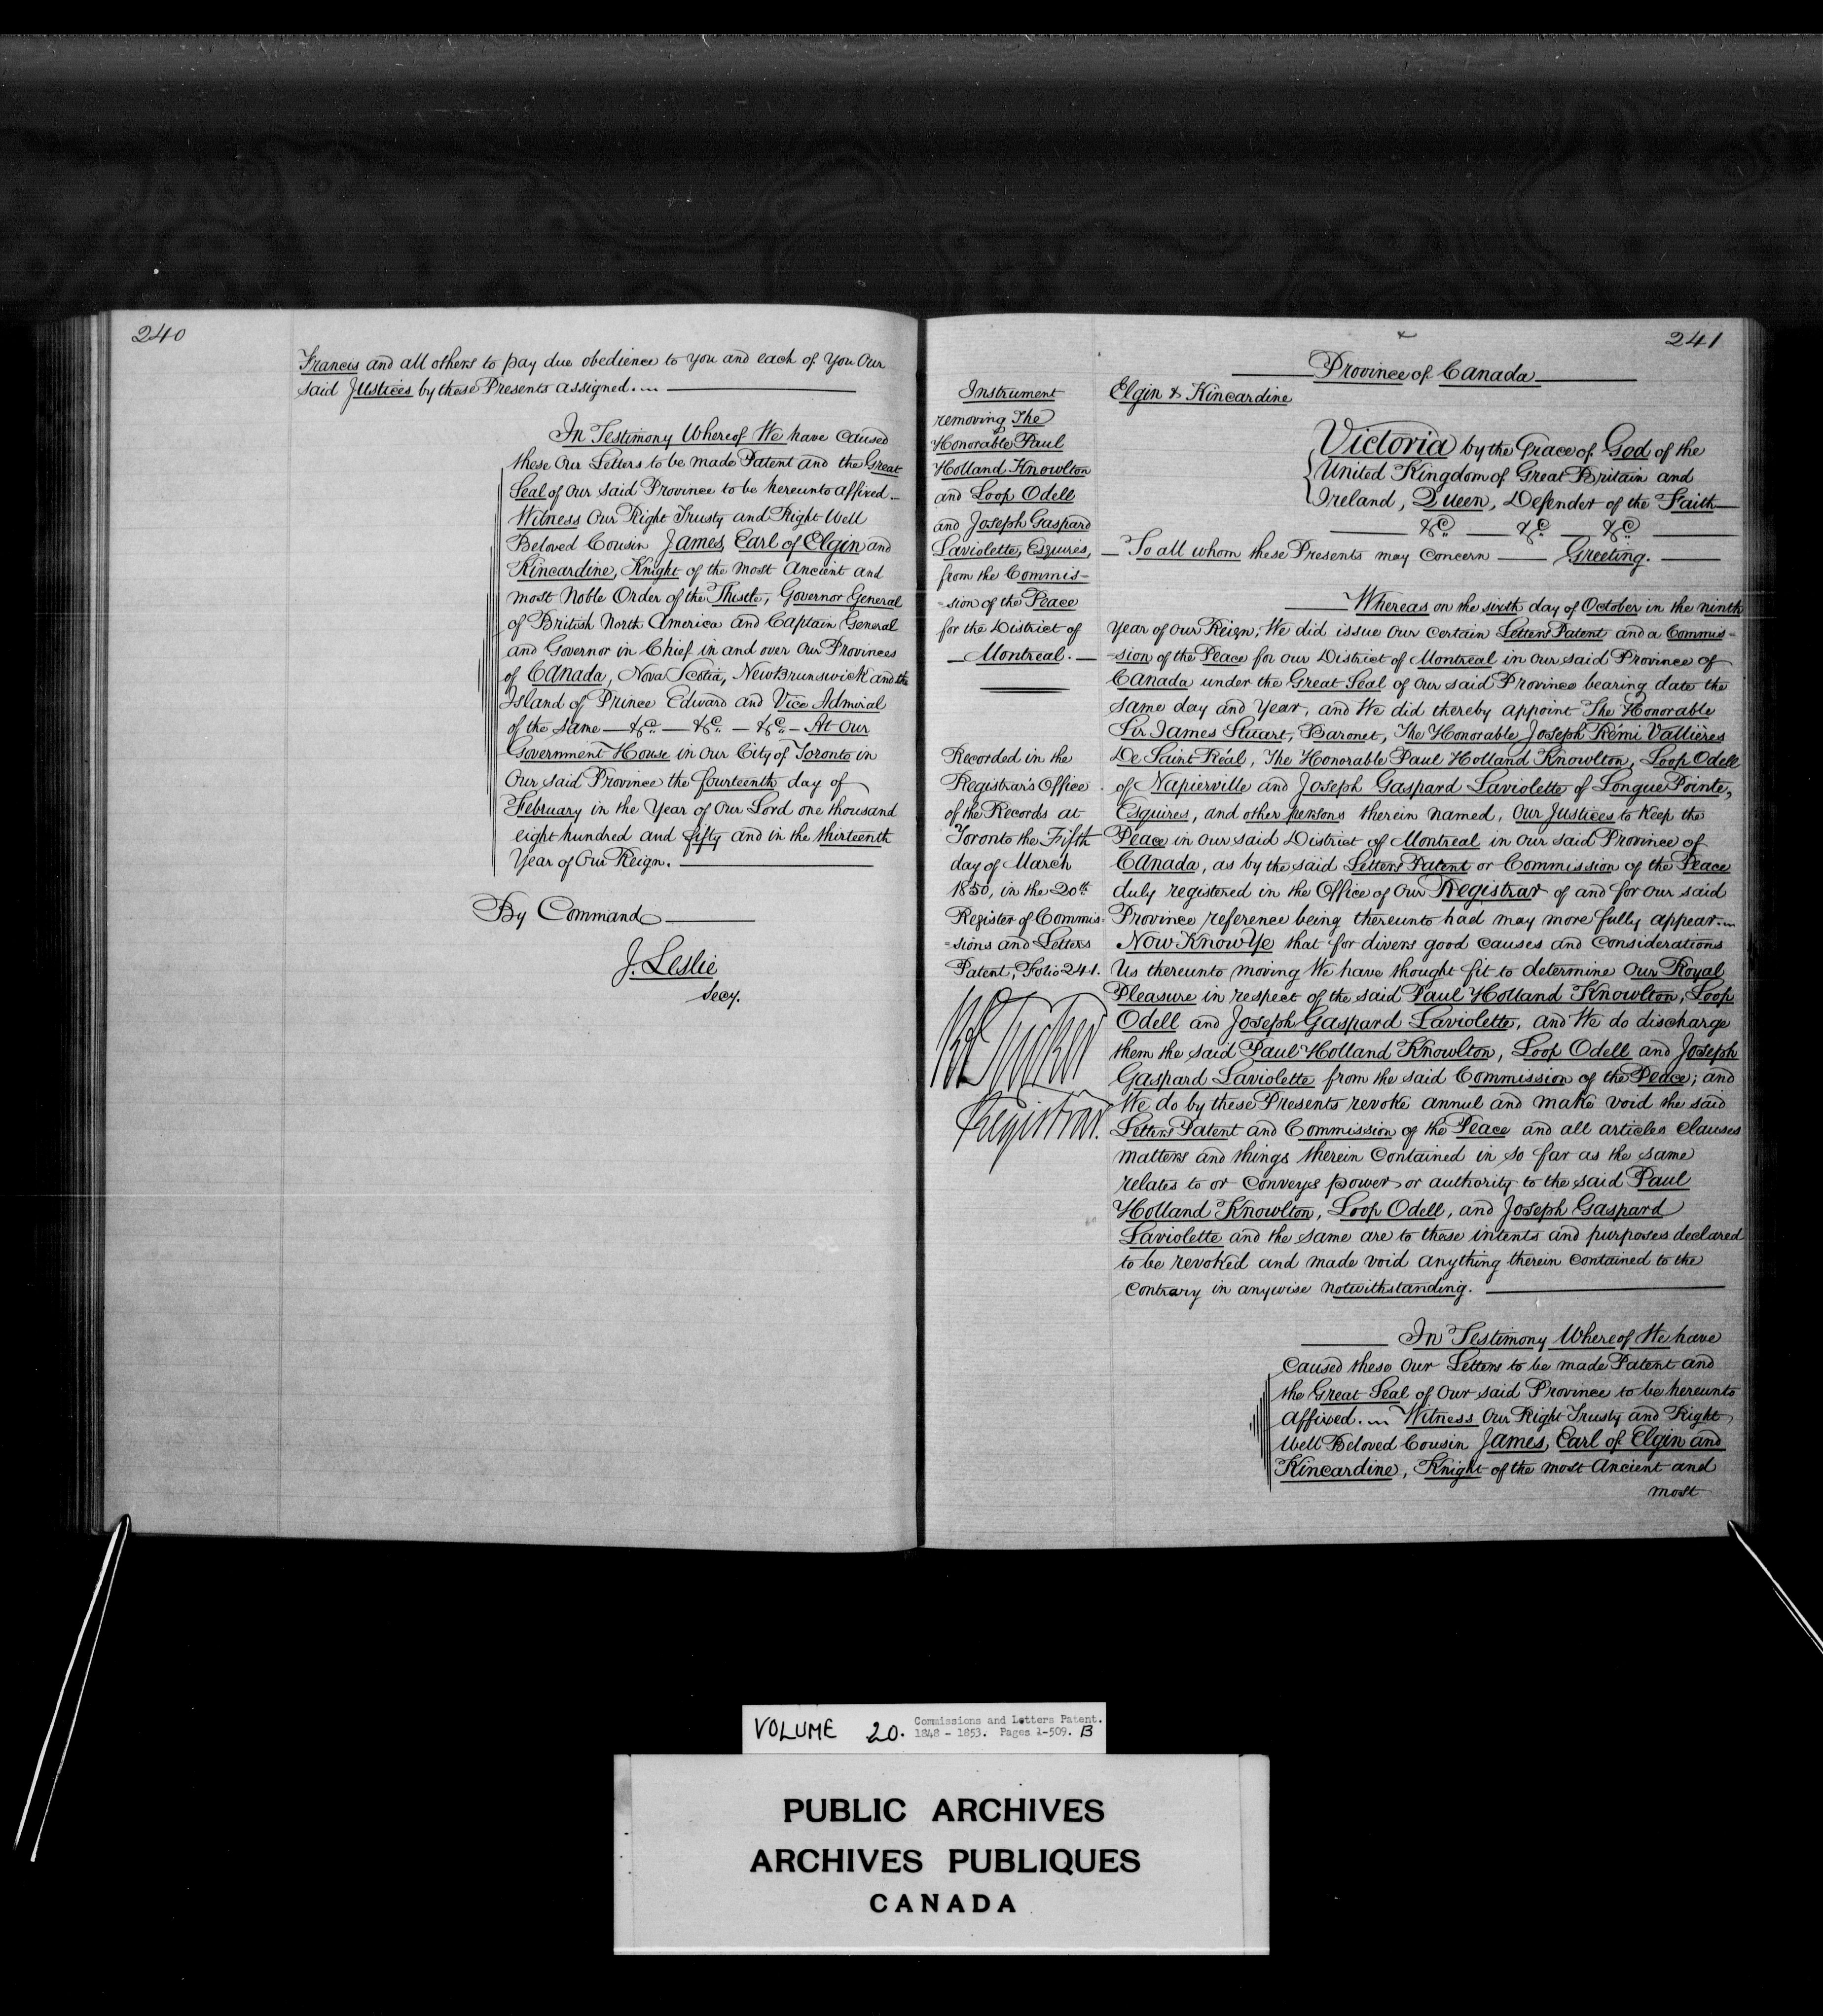 240
Francis and all others to pay due obedience to you and each of You Our
said Justices by these Presents assigned.
In Testimony Whereof We have caused
these Our Letters to be made Patent and the Great
Seal of Our said Province to be hereunto affixed.
Witness Our Right Trusty and Right Well
Beloved Cousin James, Earl of Elgin and
Kincardine, Knight of the most Ancient and
most Noble Order of the Thistle, Governor General
of British North America and Captain General
and Governor in Chief in and over Our Provinces
of Canada, Nova Scotia, New Brunswick and the
Island of Prince Edward and Vice Admiral
of the same — &c. — &c. — &c. — At Our
Government House in Our City of Toronto in
Our said Province the fourteenth day of
February in the Year of Our Lord one thousand
eight hundred and fifty and in the thirteenth
Year of Our Reign.
By Command
J. Leslie
Secy.
241
Province of Canada
Instrument
removing The
Honorable Paul
Holland Knowlton
and Loop Odell
and Joseph Gaspard
Laviolette, Esquires,
from the Commis-
=sion of the Peace
for the District of
Montreal.
Recorded in the
Registrar's Office
of the Records at
Toronto the Fifth
day of March
1850, in the 20th
Register of Commis-
=sions and Letters
Patent, Folio 241.
Registrar.
Elgin & Kincardine
Victoria by the Grace of God of the
United Kingdom of Great Britain and
Ireland, Queen, Defender of the Faith
&c. — &c. — &c.
To all whom these Presents may Concern — Greeting.
Whereas on the sixth day of October in the ninth
Year of Our Reign, We did issue Our certain Letters Patent and a Commis-
=sion of the Peace for our District of Montreal in Our said Province of
Canada under the Great Seal of Our said Province bearing date the
same day and Year, and We did thereby appoint The Honorable
Sir James Stuart, Baronet, The Honorable Joseph Rémi Vallières
De Saint Réal, The Honorable Paul Holland Knowlton, Loop Odell
of Napierville and Joseph Gaspard Laviolette of Longue Pointe,
Esquires, and other persons therein named, Our Justices to Keep the
Peace in Our said District of Montreal in Our said Province of
Canada, as by the said Letters Patent or Commission of the Peace
duly registered in the Office of Our Registrar of and for Our said
Province reference being thereunto had may more fully appear.
Now Know Ye that for divers good causes and Considerations
Us thereunto moving We have thought fit to determine Our Royal
Pleasure in respect of the said Paul Holland Knowlton, Loop
Odell and Joseph Gaspard Laviolette, and We do discharge
them the said Paul Holland Knowlton, Loop Odell and Joseph
Gaspard Laviolette from the said Commission of the Peace; and
We do by these Presents revoke annul and make void the said
Letters Patent and Commission of the Peace and all articles Clauses
matters and things therein Contained in so far as the same
relates to or Conveys power or authority to the said Paul
Holland Knowlton, Loop Odell, and Joseph Gaspard
Laviolette and the same are to these intents and purposes declared
to be revoked and made void anything therein Contained to the
Contrary in anywise notwithstanding.
In Testimony Whereof We have
Caused these Our Letters to be made Patent and
the Great Seal of Our said Province to be hereunto
affixed. Witness Our Right Trusty and Right
Well Beloved Cousin James, Earl of Elgin and
Kincardine, Knight of the most Ancient and
most
VOLUME 20. Commissions and Letters Patent.
1848 - 1853. Pages 1-509. B
PUBLIC ARCHIVES
ARCHIVES PUBLIQUES
CANADA